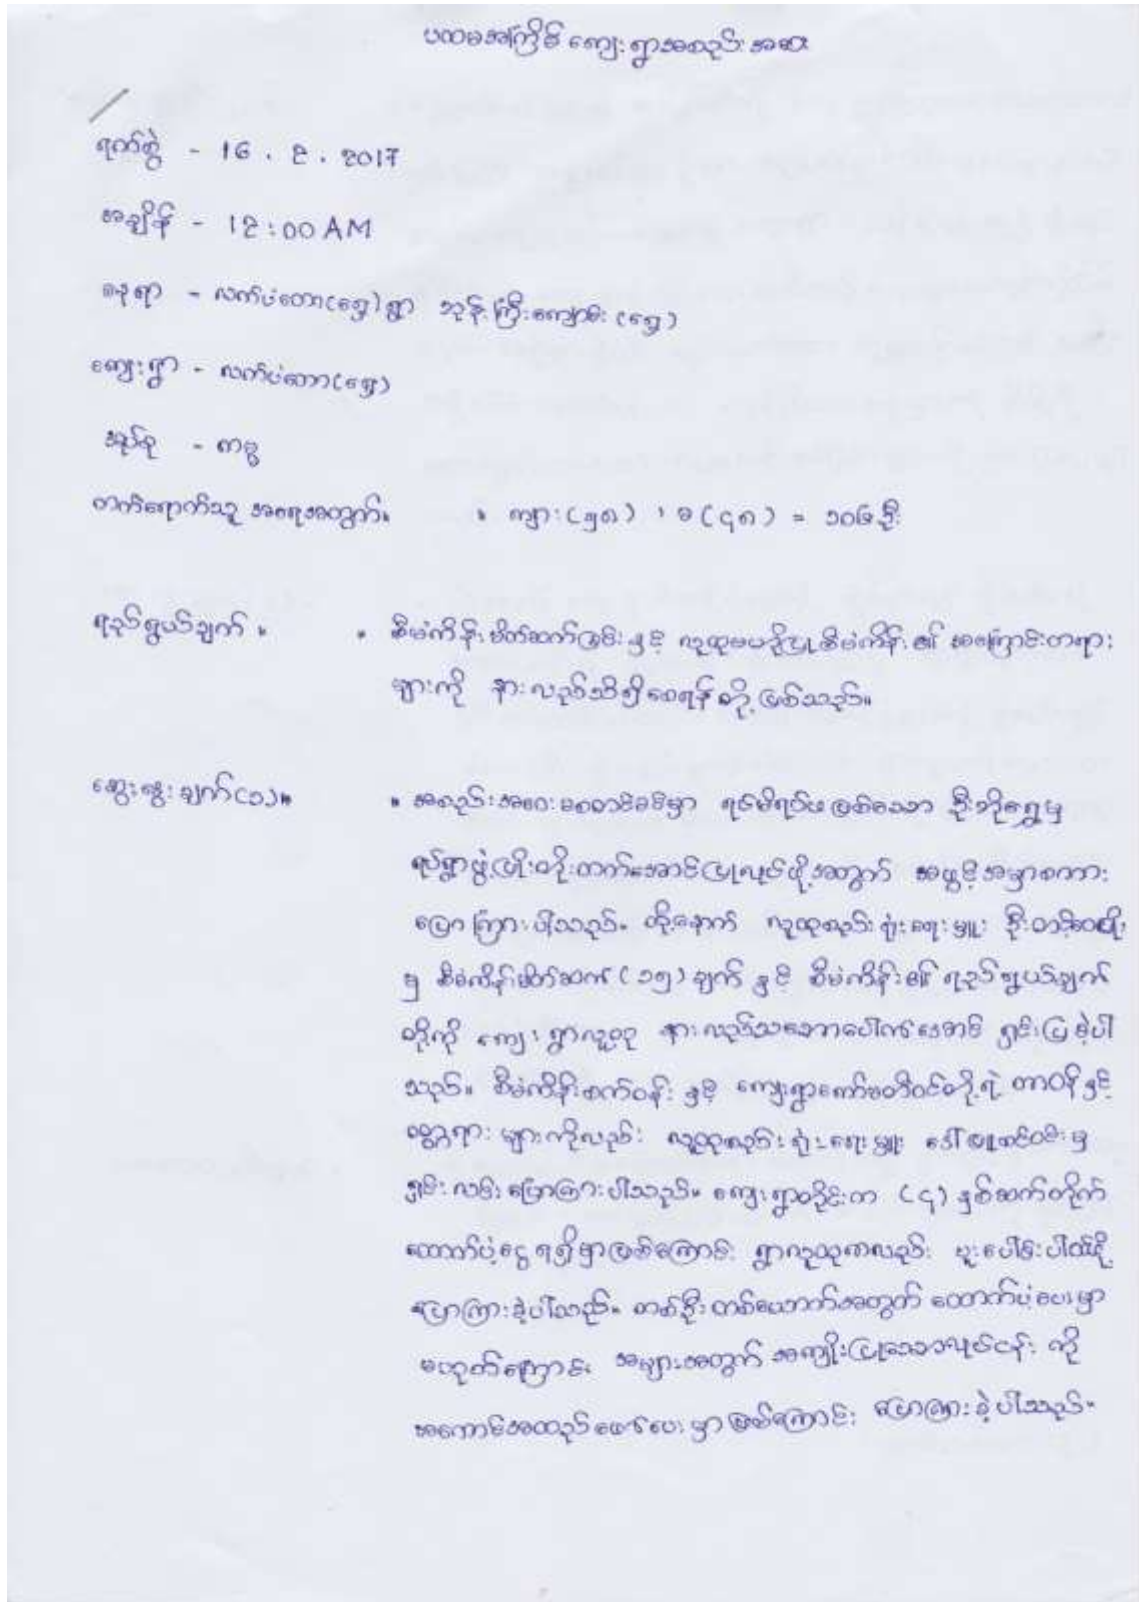 ပထမအကြိမ် ကျေးရွာအစည်းအဝေး
ရက်စွဲ - 16 . 2 . 2017
အချိန် - 12:00 AM
နေရာ - လက်ပံတော(ရှေ့)ရွာ ဘုန်းကြီးကျောင်း (ရှေ့)
ကျေးရွာ - လက်ပံတော(ရှေ့)
အုပ်စု - ကဗွ
တက်ရောက်သူ အရေအတွက်။ ။ ကျား(၅၈) ၊ မ(၄၈) = ၁၀၆ဦး
ရည်ရွယ်ချက် ။ ။ စီမံကိန်းမိတ်ဆက်ခြင်းနှင့် လူထုဗဟိုပြုစီမံကိန်း၏ အကြောင်းတရား
များကို နားလည်သိရှိစေရန်တို့ဖြစ်သည်။
ဆွေးနွေးချက်(၁)။ ။ အစည်းအဝေးမစတင်ခင်မှာ ရပ်မိရပ်ဖဖြစ်သော ဦးဘိုရွှေမှ
ရပ်ရွာဖွံ့ဖြိုးတိုးတက်အောင်ပြုလုပ်ဖို့အတွက် အဖွင့်အမှာစကား
ပြောကြားပါသည်။ ထို့နောက် လူထုစည်းရုံးရေးမှူး ဦးတင့်ဝေဖြိုး
မှ စီမံကိန်းမိတ်ဆက် (၁၅) ချက် နှင့် စီမံကိန်း၏ ရည်ရွယ်ချက်
တို့ကို ကျေးရွာလူထု နားလည်သဘောပေါက်အောင် ရှင်းပြခဲ့ပါ
သည်။ စီမံကိန်းစက်ဝန်း နှင့် ကျေးရွာကော်မတီဝင်တို့ရဲ့ တာဝန်နှင့်
ဝတ္တရားများကိုလည်း လူထုစည်းရုံးရေးမှူး ဒေါ်ဖြူစင်ဝင်းမှ
ရှင်းလင်းပြောကြားပါသည်။ ကျေးရွာတိုင်းက (၄) နှစ်ဆက်တိုက်
ထောက်ပံ့ငွေရရှိမှာဖြစ်ကြောင်း ရွာလူထုကလည်း ပူးပေါင်းပါဝင်ဖို့
ပြောကြားခဲ့ပါသည်။ တစ်ဦးတစ်ယောက်အတွက် ထောက်ပံ့ပေးမှာ
မဟုတ်ကြောင်း အများအတွက် အကျိုးပြုသောလုပ်ငန်း ကို
အကောင်အထည်ဖော်ပေးမှာဖြစ်ကြောင်း ပြောကြားခဲ့ပါသည်။